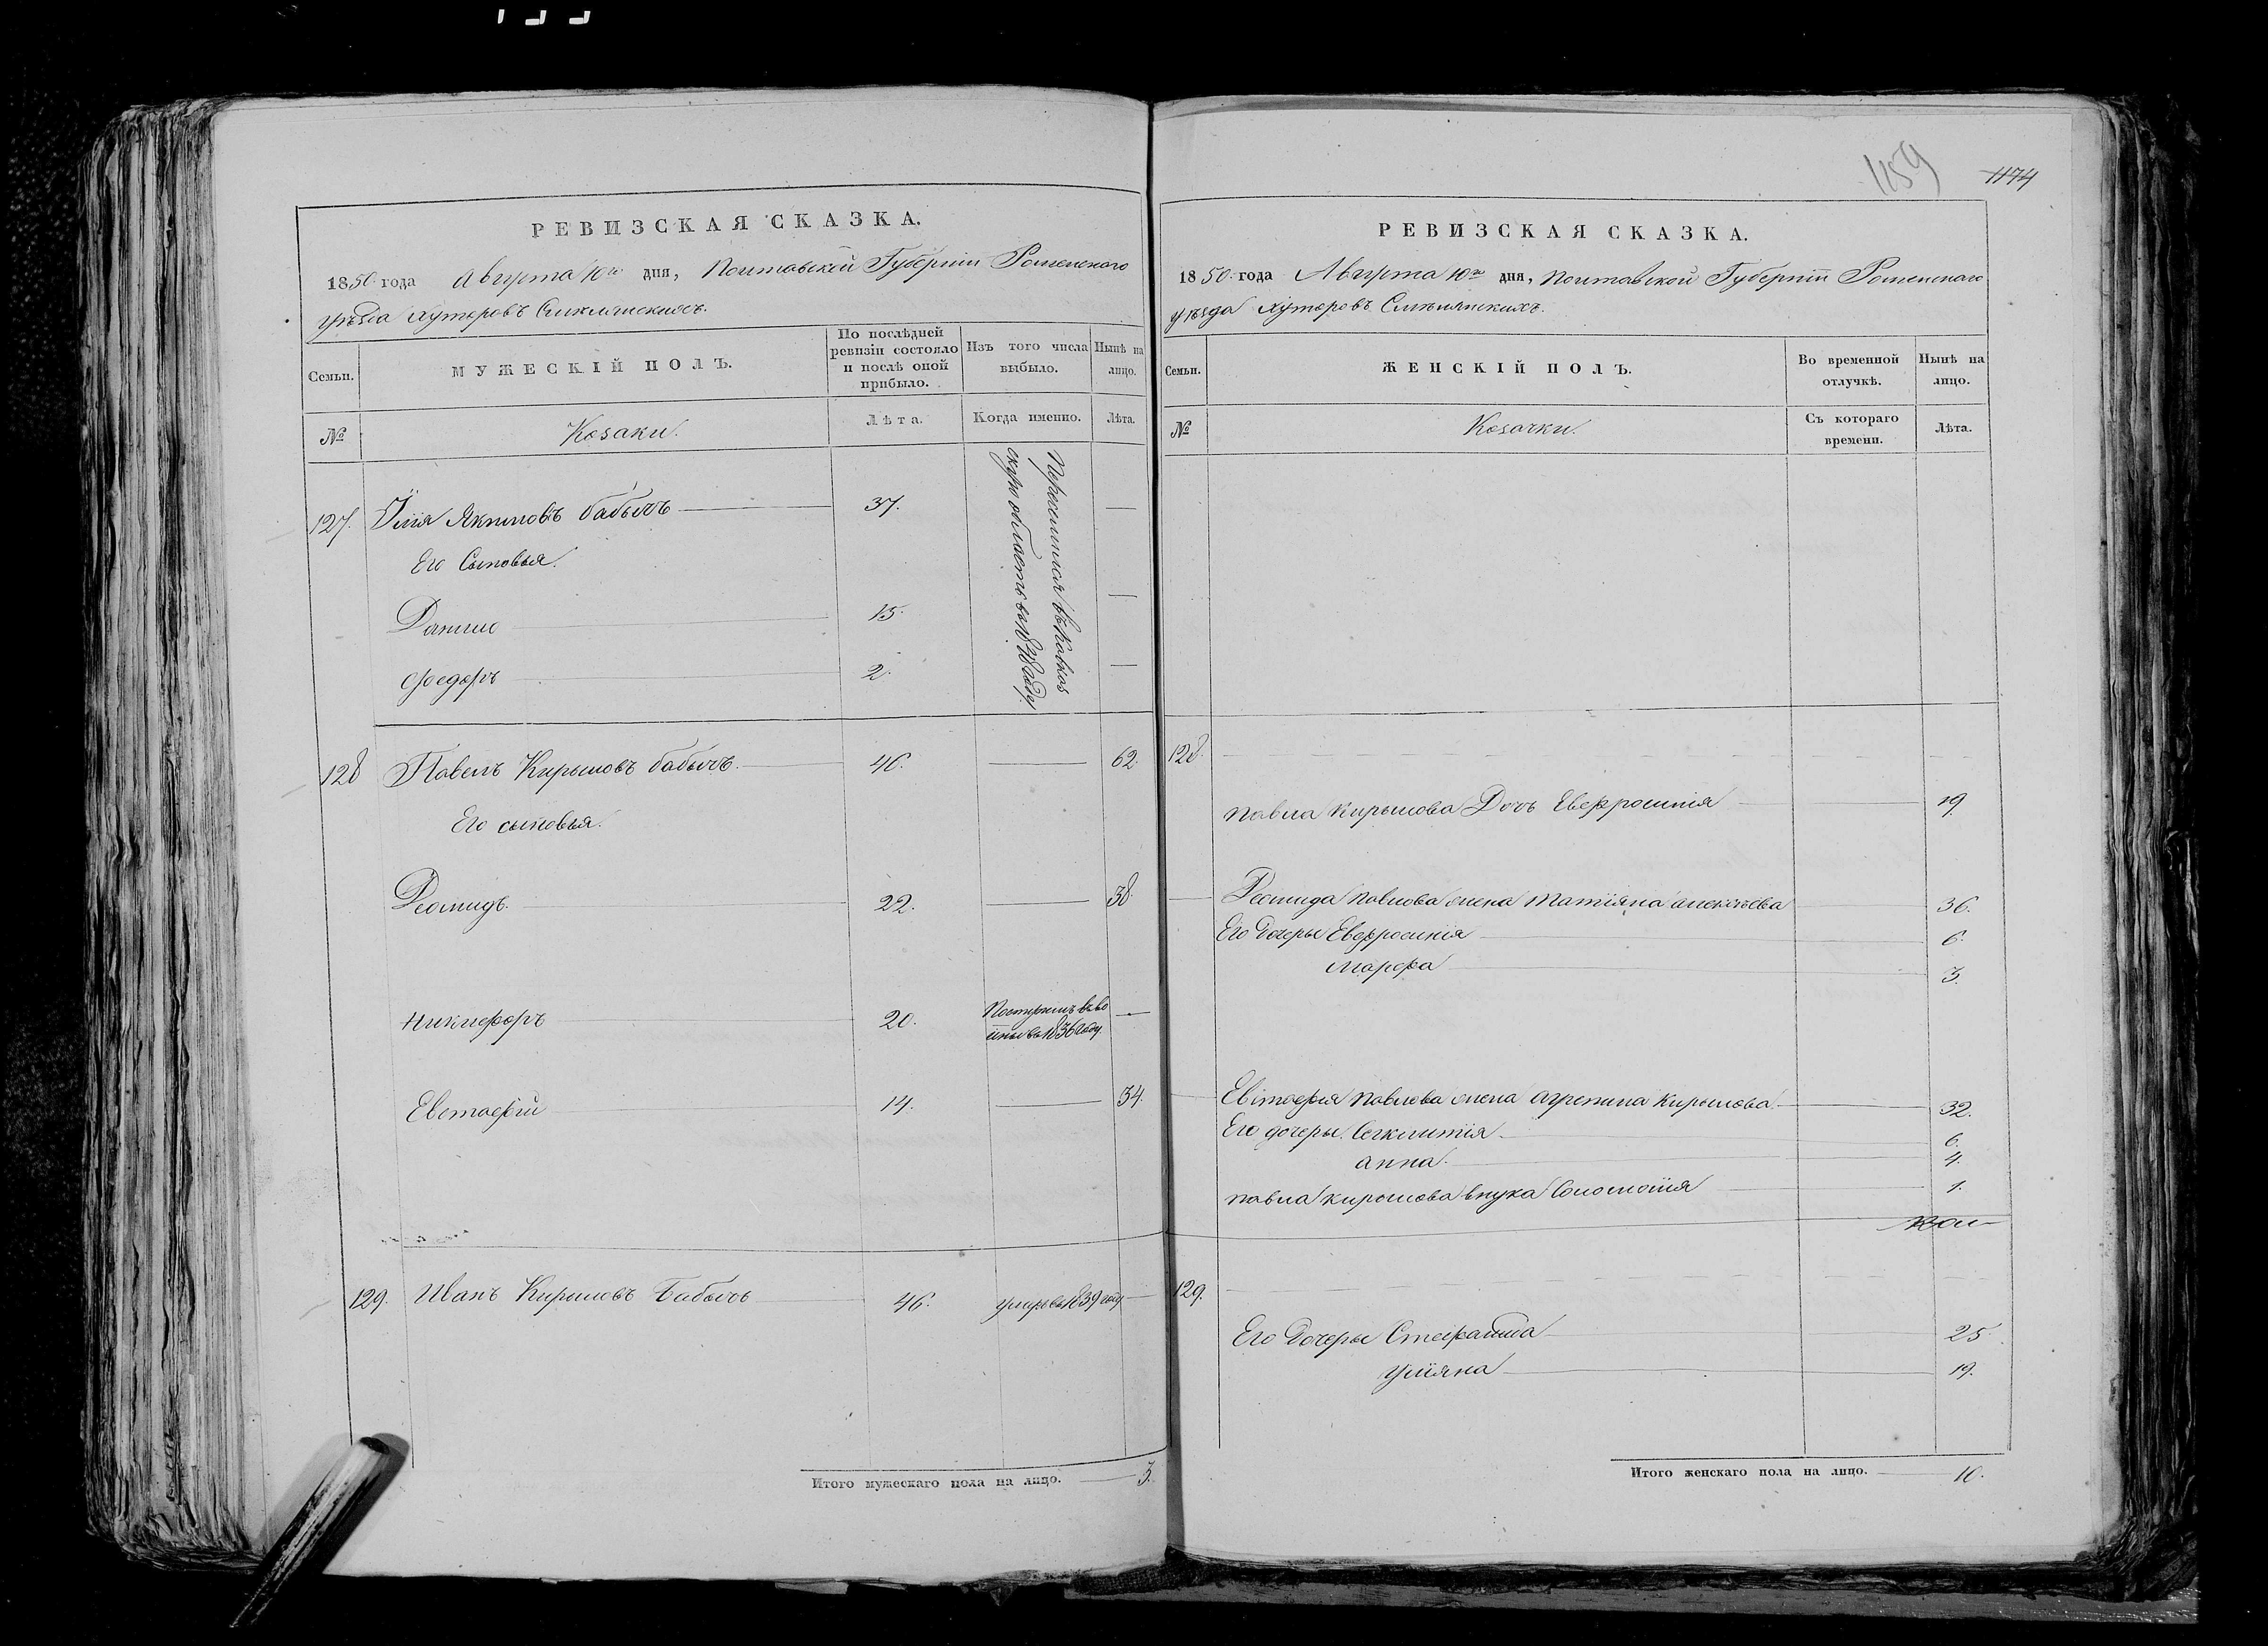 РЕВИЗСКАЯ СКАЗКА.
1850 года Августа 10го дня, Полтавской Губернiи Роменскаго
уѣзда хуторовъ Смѣлянскихъ.
Семьи.
МУЖЕСКIЙ ПОЛЪ.
По послѣдней ревизiи состояло и послѣ оной прибыло.
Изъ того числа выбыло.
Нынѣ на лицо.
№
Козаки.
Лѣта.
Когда именно.
Лѣта.
127. Илiя Якимовъ бабычъ 37. —
Переселился въ Кавказ
скую область въ 1848 году
Его Сыновья.
Данило 15. —
Федоръ 2. —
128 Павелъ Кириловъ бабычъ. 46. — 62.
Его сыновья.
Деомидъ. 22. — 38.
Никифоръ 20. Поступилъ въ во
ины въ 1836 году —
Евстафiй 14. — 34.
129. Иванъ Кириловъ Бабычъ 46. умеръ въ 1839 году —
Итого мужескаго пола на лицо. — 3.
1159
1174
РЕВИЗСКАЯ СКАЗКА.
1850 года Августа 10го дня, Полтавской Губернiи Роменскаго
уѣзда хуторовъ Смѣлянскихъ.
Семьи.
ЖЕНСКIЙ ПОЛЪ.
Во временной отлучкѣ.
Нынѣ на лицо.
№
Козачки.
Съ котораго времени.
Лѣта.
128.
Павла Кирылова Дочь Евфросинiя 19.
Деомида Павлова жена Татiяна Алексѣева 36.
Его Дочеры Евфросинiя 6.
Марфа 3.
Евстафiя Павлова жена Агрепина Кирылова. 32.
Его дочеры. 6.
Анна. 4.
Павла Кирылова внука Соломонiя 1.
129.
Его Дочеры Стефанида 25.
Улiяна 19.
Итого женскаго пола на лицо. — 10.